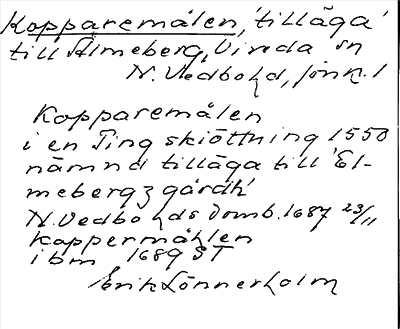 Kopparemålen, 'tilläga'
till Älmeberg, Vireda sn
N. Vedbo hd, Jönk. l
Kopparemålen
i en Ting skiöttning 1550
nämnd tilläga till 'El-
mebergz gårdh'
N. Vedbo hds domb. 1687 23/11
koppermåhlen
ibm 1689 ST
Erik Lönnerholm